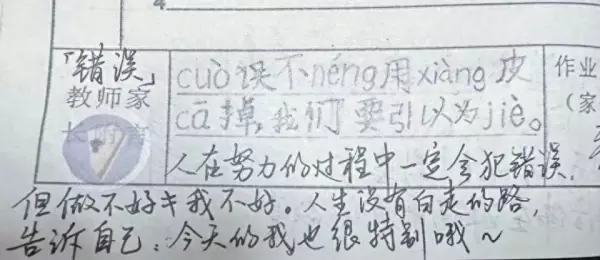 「错误」
教师家
长附言
cuò误不néng用xiàng皮
cā掉,我们要引以为jiè。
作业
(家
人在努力的过程中一定会犯错误,
但做不好≠我不好。人生没有白走的路,
告诉自己:今天的我也很特别哦～